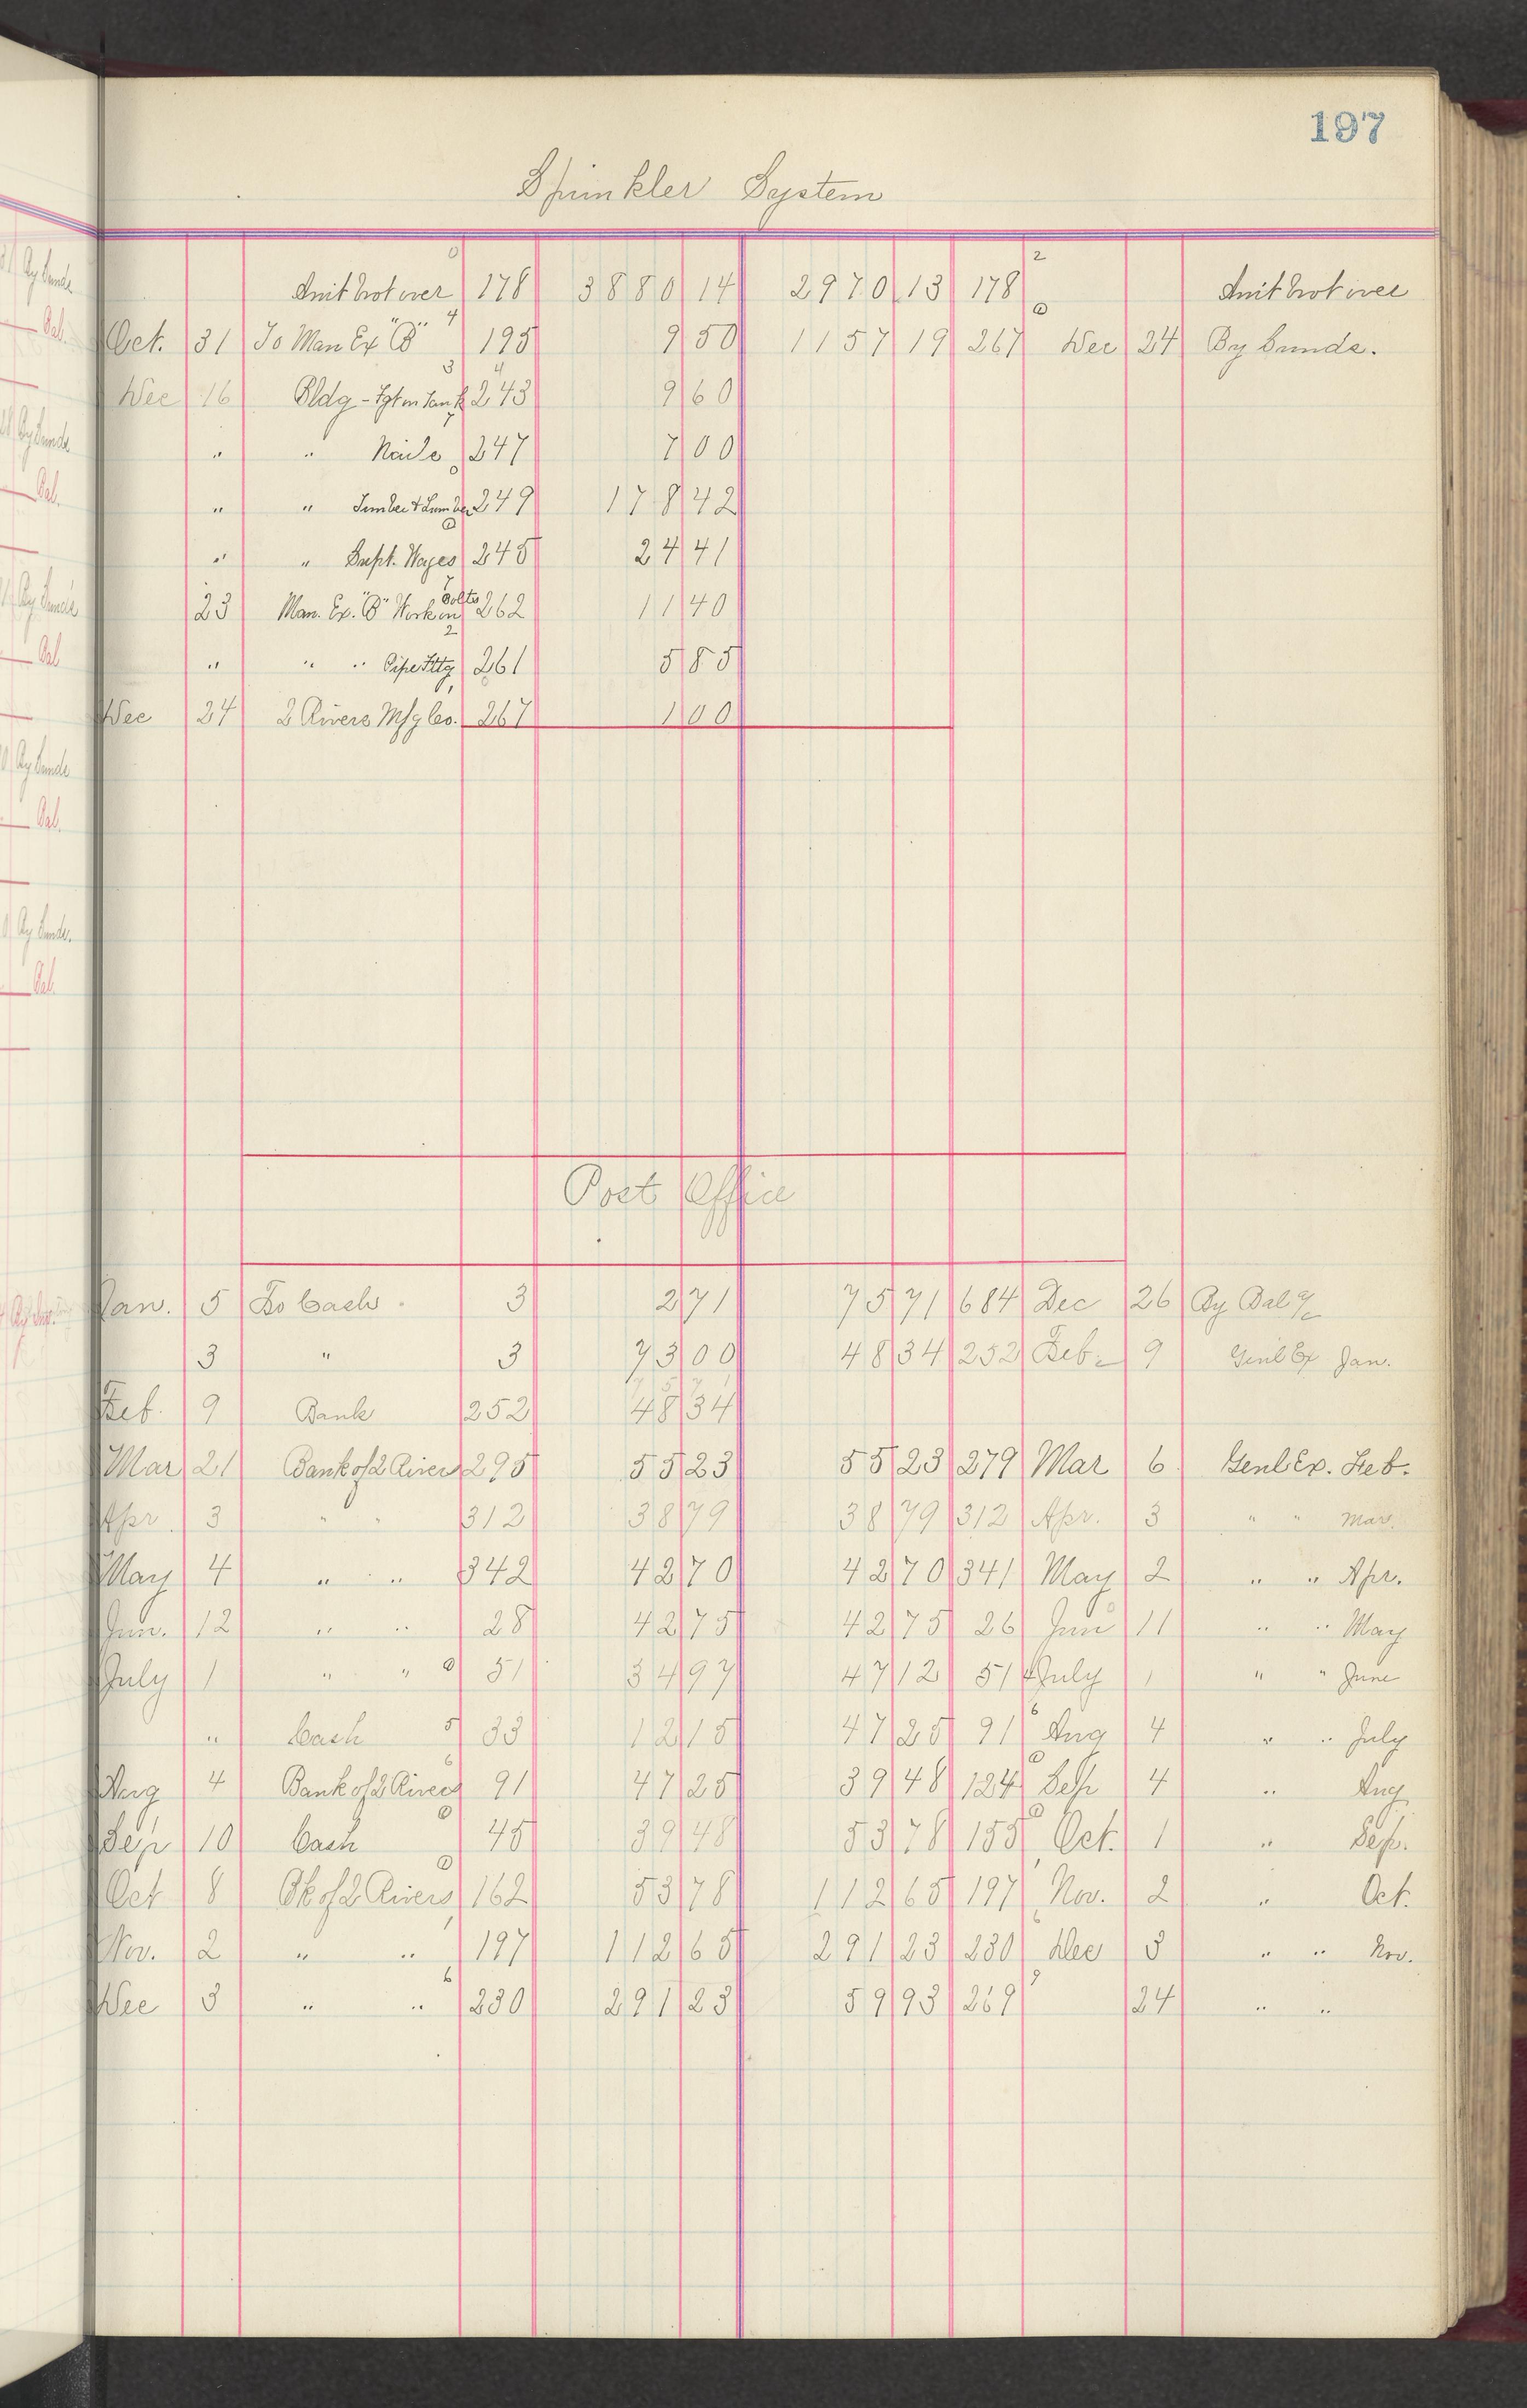 197
Sprinkler System
Amt brot over 178 3880 14 2970 13 178 Amt brot over
Oct. 31 To Man Ex "B" 195 9 50 1157 19 267 Dec 24 By Sunds.
Dec 16 Bldg - Tank 243 9 60
" " Nails 247 7 00
" " Timber & Lumber 249 178 42
" " Supt. Wages 245 24 41
23 Man. Ex. "B" Work on Bolts 262 11 40
" " " Pipe Fttg 261 5 85
Dec 24 2 Rivers Mfg Co. 267 1 00
Post Office
Jan. 5 To Cash 3 2 71 75 71 684 Dec 26 By Bal %
3 " 3 73 00 48 34 252 Feb. 9 Genl Ex Jan.
Feb. 9 Bank 252 48 34
Mar 21 Bank of 2 Rivers 295 55 23 55 23 279 Mar 6 Genl Ex. Feb.
Apr. 3 " " 312 38 79 38 79 312 Apr. 3 " " Mar.
May 4 " " 342 42 70 42 70 341 May 2 " " Apr.
Jun. 12 " " 28 42 75 42 75 26 Jun 11 " " May
July 1 " " 51 34 97 47 12 51 July 1 " " June
" Cash 33 12 15 47 25 91 Aug 4 " " July
Aug 4 Bank of 2 Rivers 91 47 25 39 48 124 Sep 4 " Aug
Sep 10 Cash 45 39 48 53 78 155 Oct. 1 " Sep.
Oct 8 Bk of 2 Rivers 162 53 78 112 65 197 Nov. 2 " Oct.
Nov. 2 " " 197 112 65 291 23 230 Dec 3 " " Nov.
Dec 3 " " 230 291 23 59 93 269 24 " "